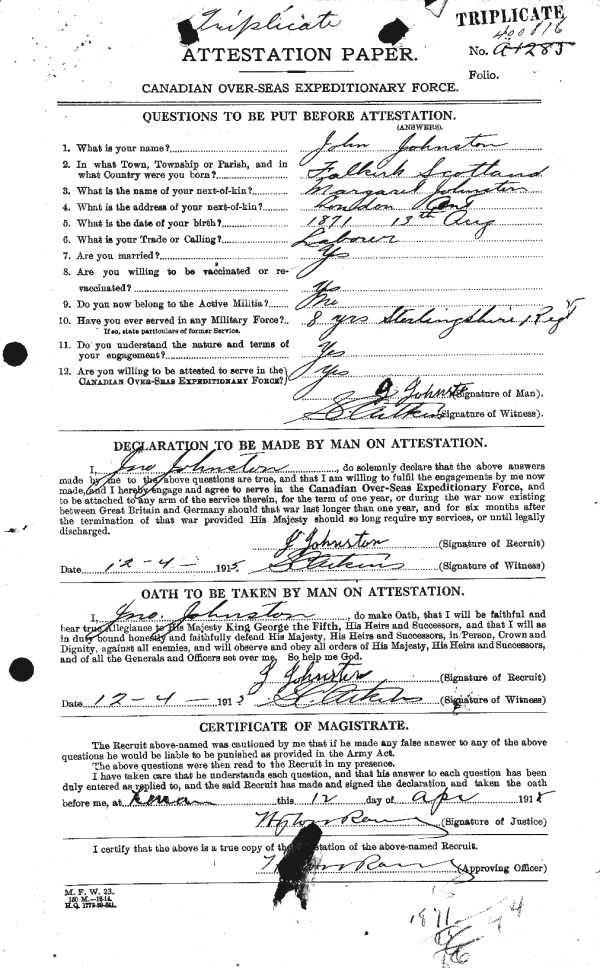 Triplicate
TRIPLICATE
400816
ATTESTATION PAPER.
No. A+285
Folio.
CANADIAN OVER-SEAS EXPEDITIONARY FORCE.
QUESTIONS TO BE PUT BEFORE ATTESTATION.
(ANSWERS.)
1. What is your name? John Johnston
2. In what Town, Township or Parish, and in
what Country were you born? Falkirk Scotland
3. What is the name of your next-of-kin? Margaret Johnston
4. What is the address of your next-of-kin? London Ont
5. What is the date of your birth? 1871 13th Aug
6. What is your Trade or Calling? Laborer
7. Are you married? Ys
8. Are you willing to be vaccinated or re-
vaccinated? Ys
9. Do you now belong to the Active Militia? No
10. Have you ever served in any Military Force? 8 yrs Sterlingshire
If so, state particulars of former Service.
11. Do you understand the nature and terms of
your engagement? Yes
12. Are you willing to be attested to serve in the
CANADIAN OVER-SEAS EXPEDITIONARY FORCE? yes
J Johnston (Signature of Man).
(Signature of Witness).
DECLARATION TO BE MADE BY MAN ON ATTESTATION.
I, Jno Johnston, do solemnly declare that the above answers
made by me to the above questions are true, and that I am willing to fulfil the engagements by me now
made, and I hereby engage and agree to serve in the Canadian Over-Seas Expeditionary Force, and
to be attached to any arm of the service therein, for the term of one year, or during the war now existing
between Great Britain and Germany should that war last longer than one year, and for six months after
the termination of that war provided His Majesty should so long require my services, or until legally
discharged.
J Johnston (Signature of Recruit)
Date 12-4- 1915 (Signature of Witness)
OATH TO BE TAKEN BY MAN ON ATTESTATION.
I, Jno. Johnston, do make Oath, that I will be faithful and
bear true Allegiance to His Majesty King George the Fifth, His Heirs and Successors, and that I will as
in duty bound honestly and faithfully defend His Majesty, His Heirs and Successors, in Person, Crown and
Dignity, against all enemies, and will observe and obey all orders of His Majesty, His Heirs and Successors,
and of all the Generals and Officers set over me. So help me God.
J Johnston (Signature of Recruit)
Date 12-4- 1915 (Signature of Witness)
CERTIFICATE OF MAGISTRATE.
The Recruit above-named was cautioned by me that if he made any false answer to any of the above
questions he would be liable to be punished as provided in the Army Act.
The above questions were then read to the Recruit in my presence.
I have taken care that he understands each question, and that his answer to each question has been
duly entered as replied to, and the said Recruit has made and signed the declaration and taken the oath
before me, at this 12 day of Apr 1915
(Signature of Justice)
I certify that the above is a true copy of the Attestation of the above-named Recruit.
(Approving Officer)
M. F. W. 23.
150 M.-12-14.
H.Q. 1772-39-841.
1871